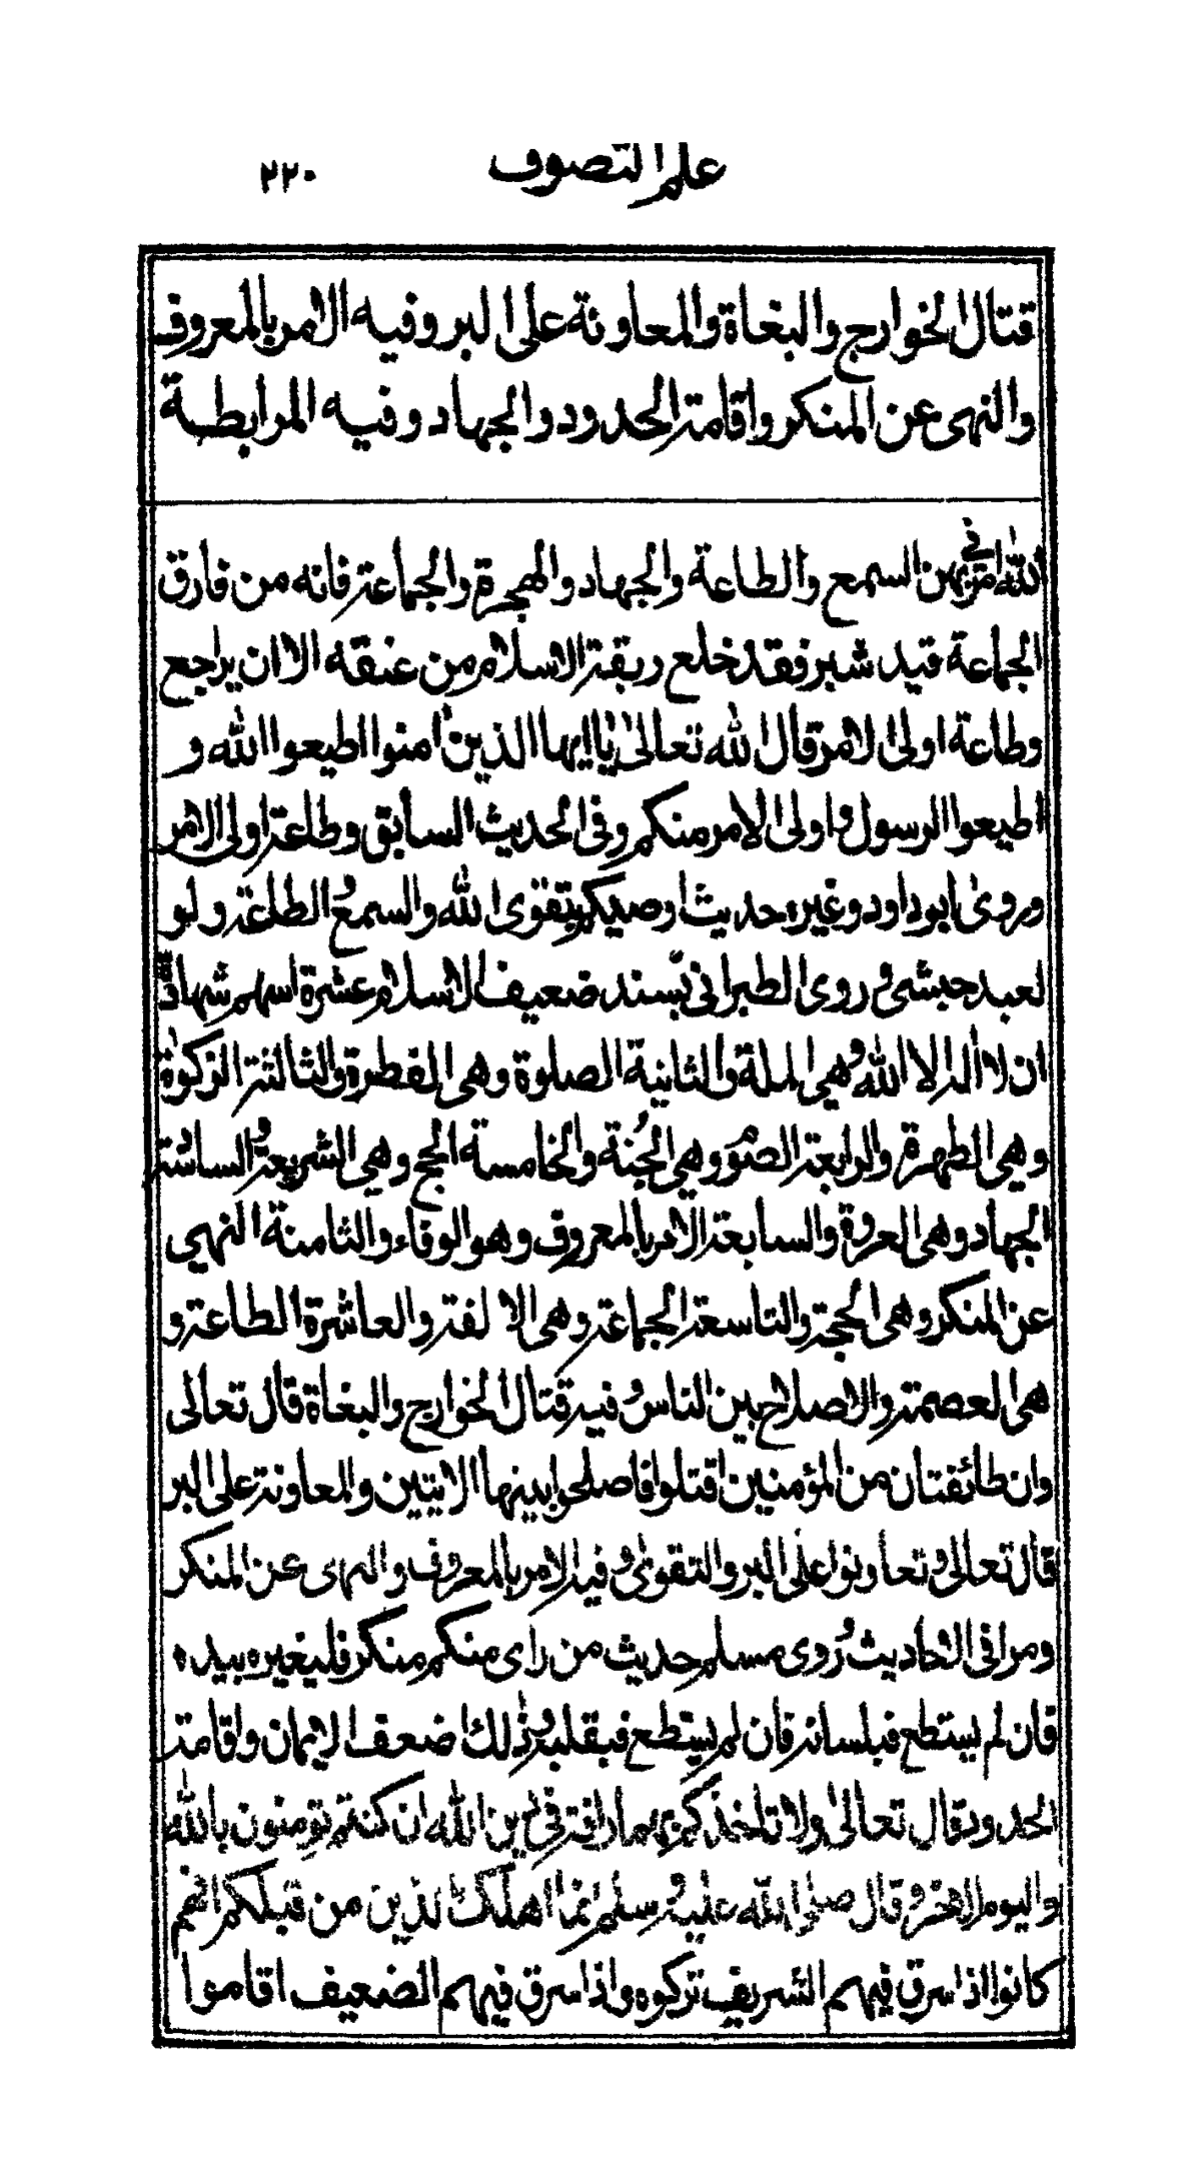 علم التصوف ٢٢٠
قتال الخوارج والبغاة والمعاونة على البر وفيه الامر بالمعروف
والنهى عن المنكر واقامة الحدود والجهاد وفيه المرابطة
الله امرنى بهن السمع والطاعة والجهاد والهجرة والجماعة فانه من فارق
الجماعة قيد شبر فقد خلع ربقة الاسلام من عنقه الا ان يراجع
وطاعة اولى الامر قال الله تعالى يا ايها الذين امنوا اطيعوا الله و
اطيعوا الرسول واولى الامر منكم وفى الحديث السابق وطاعة اولى الامر
وروى ابو داود وغيره حديث اوصيكم بتقوى الله والسمع و الطاعة ولو
لعبد حبشى و روى الطبرانى بسند ضعيف الاسلام عشرة اسهم شهادة
ان لا اله الا الله وهي الملة والثانية الصلوة وهى الفطرة والثالثة الزكوة
وهي الطهرة والرابعة الصوم وهي الجُنة والخامسة الحج وهي الشريعة و السادسة
الجهاد وهى العروة والسابعة الامر بالمعروف وهو الوفاء والثامنة النهي
عن المنكر وهى الحجة والتاسعة الجماعة وهى الالفة والعاشرة الطاعة و
هى العصمة والاصلاح بين الناس و فيه قتال الخوارج والبغاة قال تعالى
وان طائفتان من المؤمنين اقتتلوا فاصلحوا بينهما الايتين والمعاونة على البر
قال تعالى وتعاونوا على البر والتقوى وفيه الامر بالمعروف والنهى عن المنكر
ومرا فى الاحاديث و روى مسلم حديث من راى منكم منكر فليغيره بيده
فان لم يستطع فبلسانه فان لم يستطع فبقلبه و ذلك اضعف الايمان واقامة
الحدود قال تعالى ولا تاخذكم بهما رافة فى دين الله ان كنتم تومنون بالله
واليوم الاخر وقال صلى الله عليه و سلم انما اهلك الذين من قبلكم انهم
كانوا اذا سرق فيهم الشريف تركوه واذا سرق فيهم الضعيف اقاموا